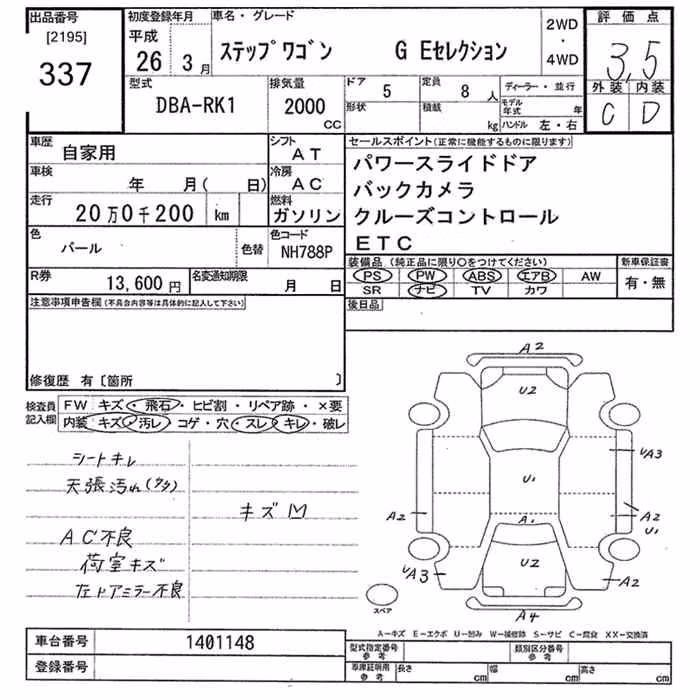 出品番号
[2195]
337
初度登録年月
平成
26年 3月
車名・グレード
ステップワゴン G Eセレクション
2WD
・
4WD
評価点
3.5
外装 内装
C D
型式
DBA-RK1
排気量
2000
CC
ドア
5
形状
定員
8 人
積載
kg
ディーラー・並行
モデル年式 年
ハンドル 左・右
車歴
自家用
シフト
AT
車検
年 月( 日)
冷房
AC
走行
20万0千200 km
燃料
ガソリン
色
パール
色替
色コード
NH788P
R券
13,600円
名変通知期限
月 日
セールスポイント(正常に機能するものに限ります)
パワースライドドア
バックカメラ
クルーズコントロール
ETC
装備品(純正品に限り○をつけてください)
PS PW ABS エアB AW
SR ナビ TV カワ
新車保証書
有・無
後日品
注意事項申告欄(不具合内容等は具体的に記入して下さい)
修復歴 有〔箇所 〕
検査員記入欄
FW キズ・飛石・ヒビ割・リペア跡・×要
内装 キズ・汚レ・コゲ・穴・スレ・キレ・破レ
シートキレ
天張汚れ(タタ)
キズM
AC不良
荷室キズ
左ドアミラー不良
A2
U2
UA3
U1
A2
A2
U1
A1
UA3
U2
A2
A4
スペア
A―キズ E―エクボ U―凹み W―補修跡 S―サビ C―腐食 XX―交換済
車台番号
1401148
登録番号
型式指定番号
参考
類別区分番号
参考
車庫証明用
参考
長さ cm
幅 cm
高さ cm